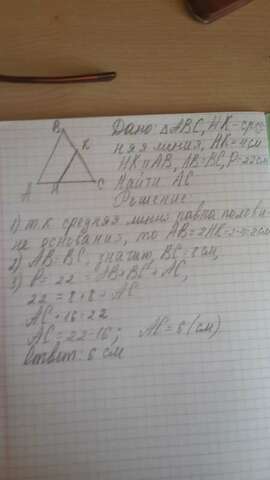 B
K
A
H
C
Дано: △ABC, HK-сред-
няя линия, HK=4см
HK∥AB, AB=BC, P=22см
Найти: AC
Решение
1) т.к средняя линия равна полови-
не основания, то AB=2HK=2·4=8см
2) AB=BC, значит, BC=8см,
3) P=22=AB+BC+AC,
22=8+8+AC
AC+16=22
AC=22-16; AC=6(см)
Ответ: 6 см